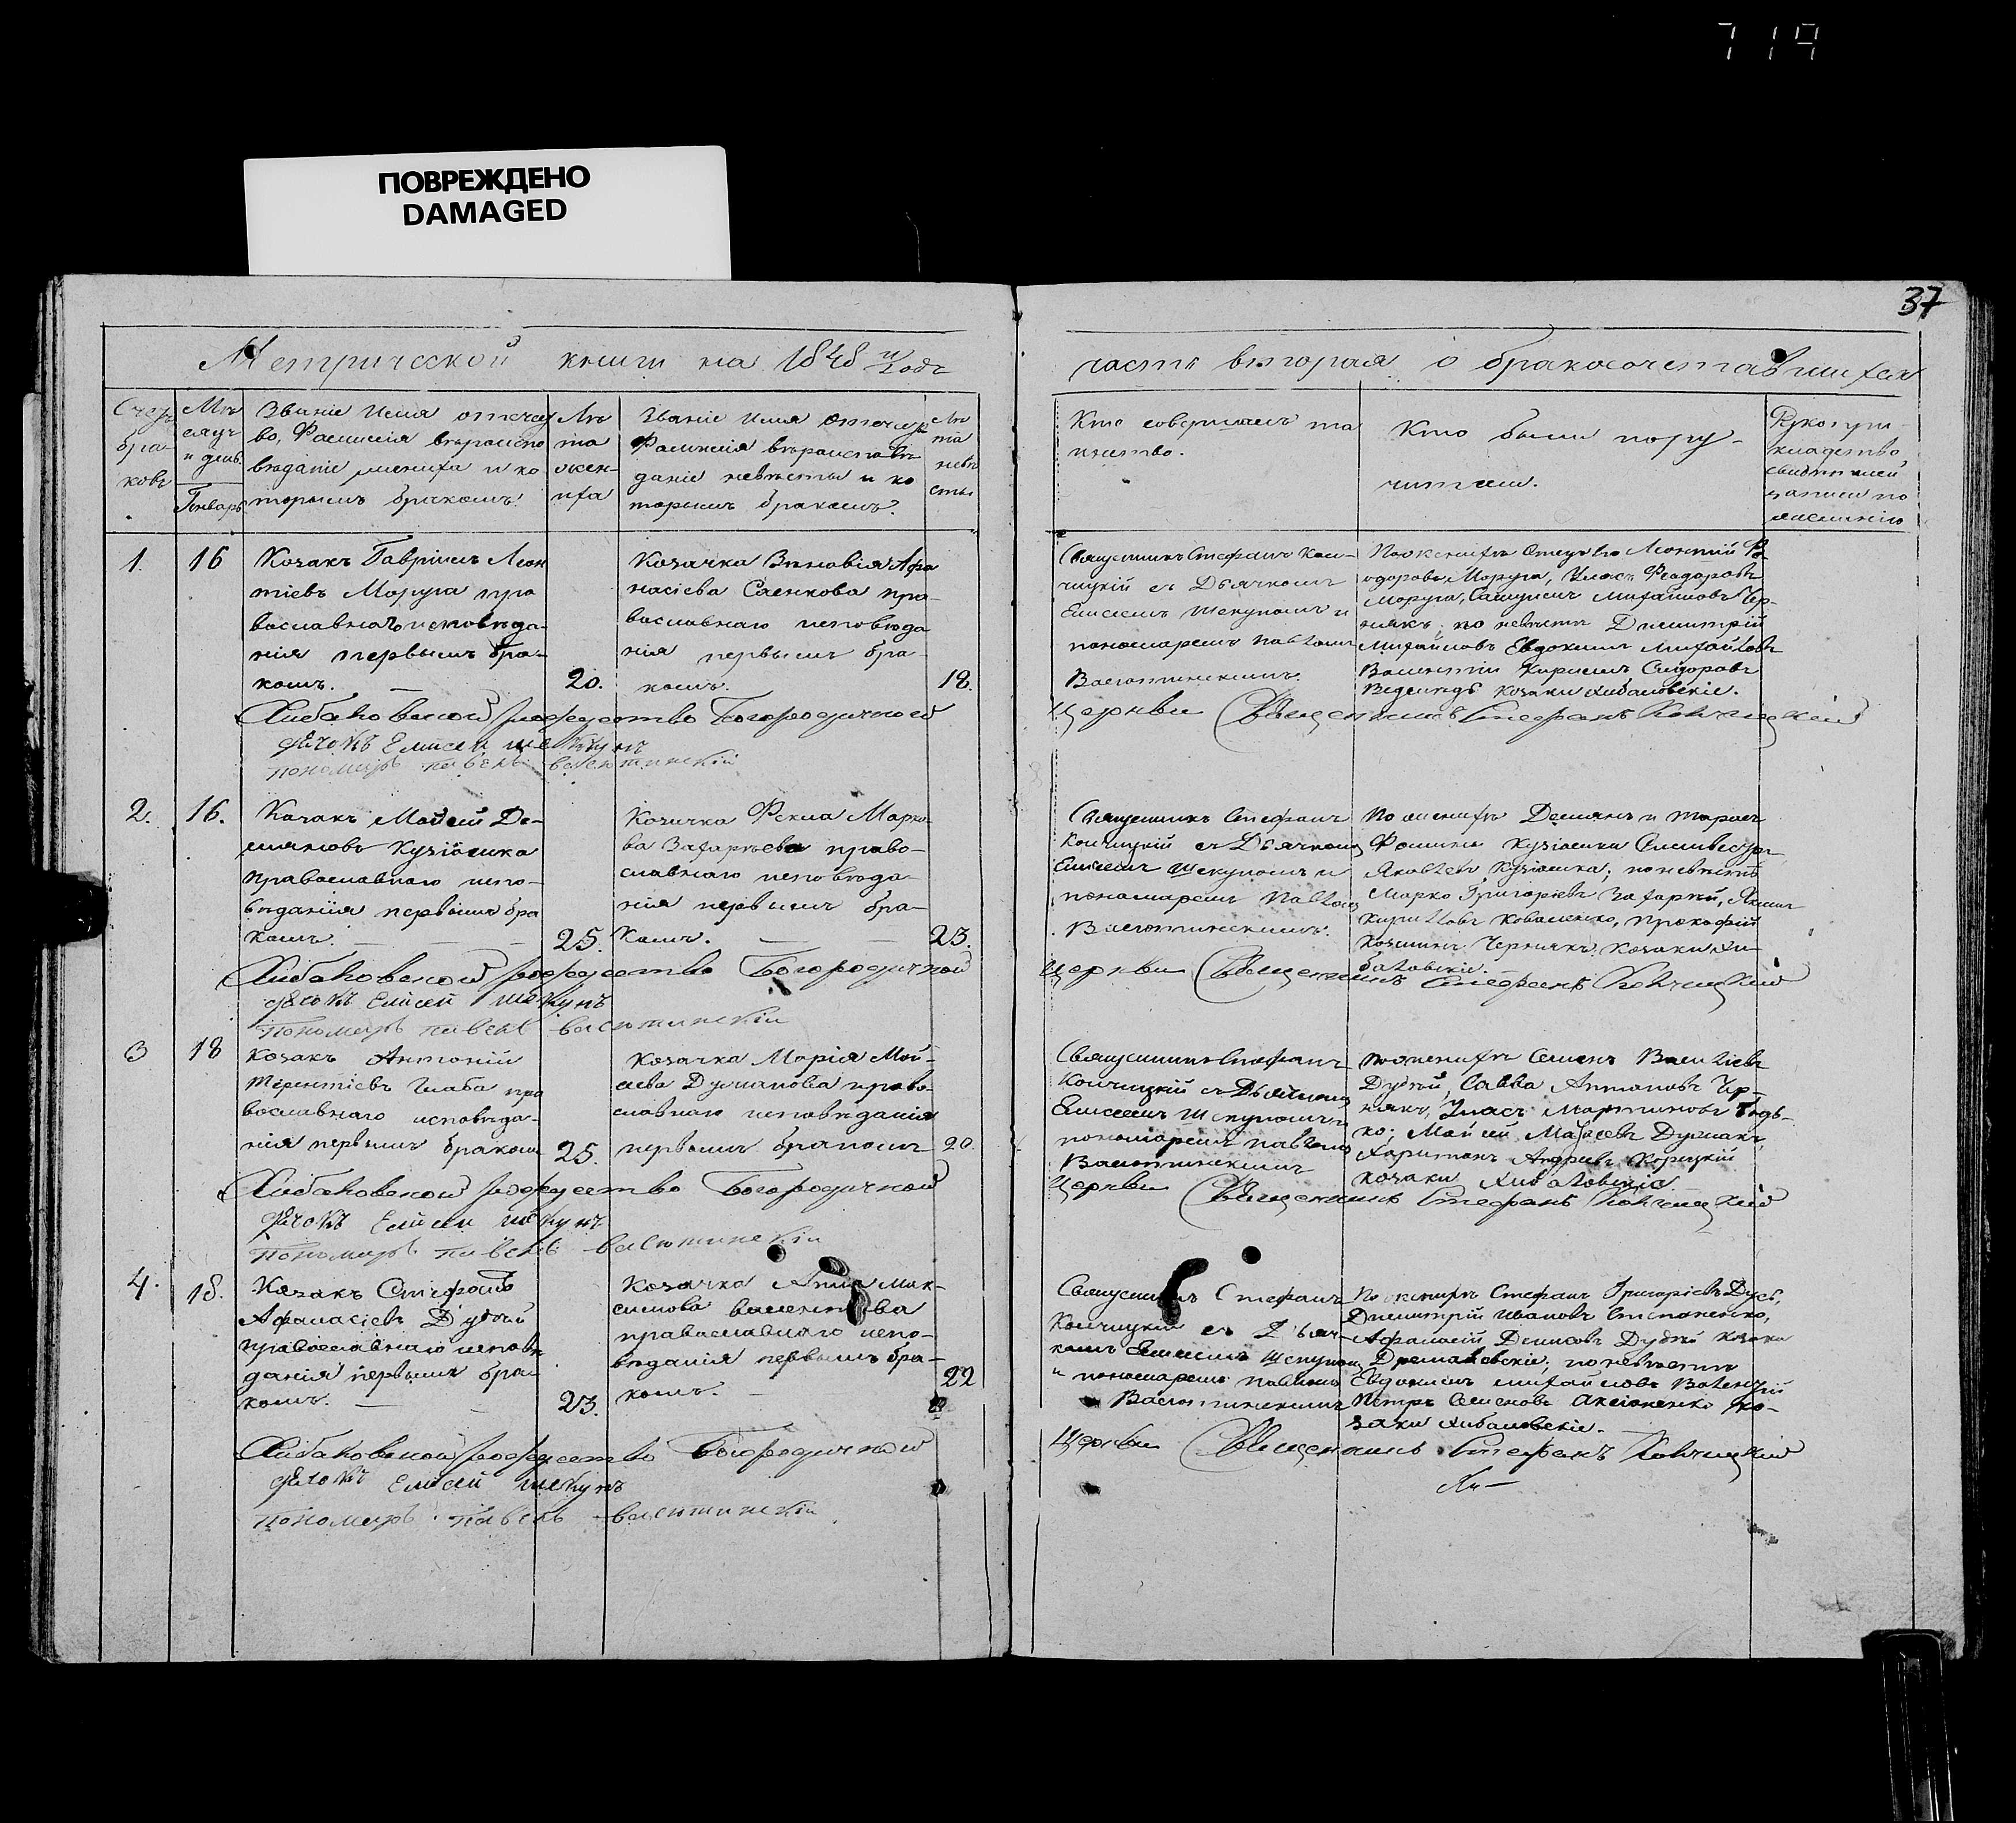 714
ПОВРЕЖДЕНО
DAMAGED
37
Метрической книги на 1848 й годъ
часть вторая о бракосочетавшихся
Счетъ браковъ
Мѣсяцъ и день
Генварь
Званіе Имя отечес
во, Фамилія вѣроиспо
вѣданіе жениха и ко
торымъ бракомъ.
Лѣ
та
жен-
иха
Званіе Имя отечес
Фамилія вѣроисповѣ
даніе невѣсты и ко
торымъ бракомъ?
Лѣ
та
невѣ
сты
Кто совершалъ та
инство.
Кто были пору-
чители.
Рукопри-
кладство
свидѣтелей
записи по
желанію
1.
16
Козакъ Гавріилъ Леон
тіевъ Моруга пра
вославнаго исповѣда-
нія первымъ бра-
комъ.
20.
Козачка Зѣновія Афа
насіева Саенкова пра-
вославнаго исповѣда
нія первымъ бра-
комъ.
18.
Священникъ Стефанъ Кон-
чицкій съ Дьячкомъ
Елисеемъ Шекуномъ и
пономаремъ Павломъ
Васютинскимъ.
По женихѣ Отецъ его Леонтій Ѳе
одоровъ Моруга, Уласъ Феодоровъ
Моруга, Самуилъ Михайловъ Чер-
някъ, по невѣсте Димитрій
Михайловъ Евдокимъ Михайловъ
Кирилъ Сидоровъ
козаки Хибаловскіе.
Хибаловской рождество Богородичной церкви Священникъ Стефанъ Кончицкій
дячокъ Елисей шекунъ
пономарь павелъ васютинскій
2.
16.
Козакъ Мойсей Де-
мяновъ Кузіомка
православнаго испо-
вѣданія первымъ бра
комъ.
25.
Козачка Фекла Марко
ва Захарьева право-
славнаго исповѣда-
нія первымъ бра-
комъ.
23.
Священникъ Стефанъ
Кончицкій съ Дьячкомъ
Елисеемъ Шекуномъ и
пономаремъ Павломъ
Васютинскимъ.
По женихѣ Демянъ и Тарасъ
Фомины Кузіомки
Яковлевъ Кузіомка; по невѣстѣ
Марко Григоріевъ Захарчій, Якимъ
Кириловъ Коваленко, Прокофій
Козминъ Чернякъ, козаки Хи-
баловскіе.
Хибаловской рождество Богородичной церкви Священникъ Стефанъ Кончицкій
дячокъ Елисей шекунъ
пономарь павелъ васютинскій
3
18
Козакъ Антоній
Терентіевъ Глаба пра
вославнаго исповѣда-
нія первымъ бракомъ
25.
Козачка Марія Мой-
сеева Думанова право-
славнаго исповѣданія
первымъ бракомъ
20.
Священникъ Стефанъ
Кончицкій съ Дьячкомъ
Елисеемъ Шекуномъ и
пономаремъ Павломъ
Васютинскимъ
по женихѣ Семенъ Василіевъ
Дубовой, Савва Антоновъ Чер-
някъ, Уласъ Мартиновъ
Мойсей Думанъ,
Харитонъ Андреевъ Корецкій
козаки Хибаловскіе.
Хибаловской рождество Богородичной церкви Священникъ Стефанъ Кончицкій
дячокъ Елисей шекунъ
пономарь павелъ васютинскій
4.
18.
Козакъ Стефанъ
Афанасіевъ
православнаго исповѣ
данія первымъ бра-
комъ.
23.
Козачка Анна Мак-
симова
православнаго испо-
вѣданія первымъ бра-
комъ.
22
Священникъ Стефанъ
Кончицкій съ Дьяч-
комъ Елисеемъ Шекуномъ
и пономаремъ Павломъ
Васютинскимъ
По женихѣ Стефанъ Григоріевъ
Димитрій Ивановъ Степаненко,
Афанасій Денисовъ козаки
по невѣсте
Евдокимъ Михайловъ
Петръ Семеновъ Аксіоненко ко-
заки Хибаловскіе.
Хибаловской рождество Богородичной церкви Священникъ Стефанъ Кончицкій
дячокъ Елисей шекунъ
пономарь павелъ васютинскій